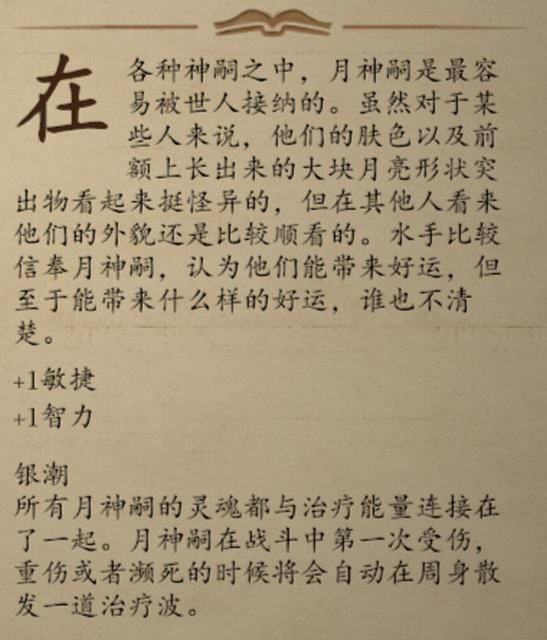 在各种神嗣之中，月神嗣是最容
易被世人接纳的。虽然对于某
些人来说，他们的肤色以及前
额上长出来的大块月亮形状突
出物看起来挺怪异的，但在其他人看来
他们的外貌还是比较顺看的。水手比较
信奉月神嗣，认为他们能带来好运，但
至于能带来什么样的好运，谁也不清
楚。
+1敏捷
+1智力
银潮
所有月神嗣的灵魂都与治疗能量连接在
了一起。月神嗣在战斗中第一次受伤，
重伤或者濒死的时候将会自动在周身散
发一道治疗波。